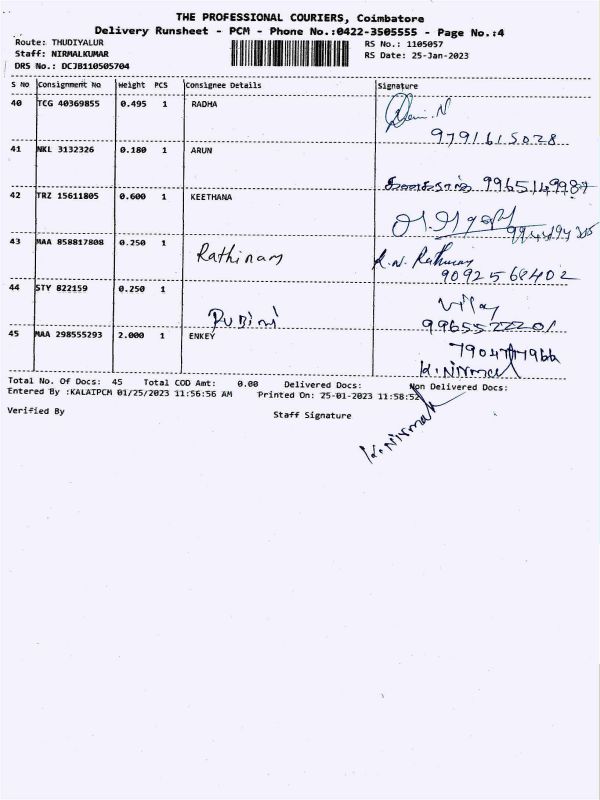 THE PROFESSIONAL COURIERS, Coimbatore
Delivery Runsheet - PCM - Phone No.:0422-3505555 - Page No.:4
Route: THUDIYALUR
Staff: NIRMALKUMAR
DRS No.: DCJB110505704
RS No.: 1105057
RS Date: 25-Jan-2023
S No Consignment No Weight PCS Consignee Details Signature
40 TCG 40369855 0.495 1 RADHA
9791615028
41 NKL 3132326 0.180 1 ARUN
9965149987
42 TRZ 15611805 0.600 1 KEETHANA
43 MAA 858817808 0.250 1 Rathinam R.N. Rathinam
9092568402
44 STY 822159 0.250 1 Vijay
9965522201
45 MAA 298555293 2.000 1 ENKEY
K. Nirmal
Total No. Of Docs: 45 Total COD Amt: 0.00 Delivered Docs: Non Delivered Docs:
Entered By :KALAIPCM 01/25/2023 11:56:56 AM Printed On: 25-01-2023 11:58:52
Verified By Staff Signature
K. Nirmal